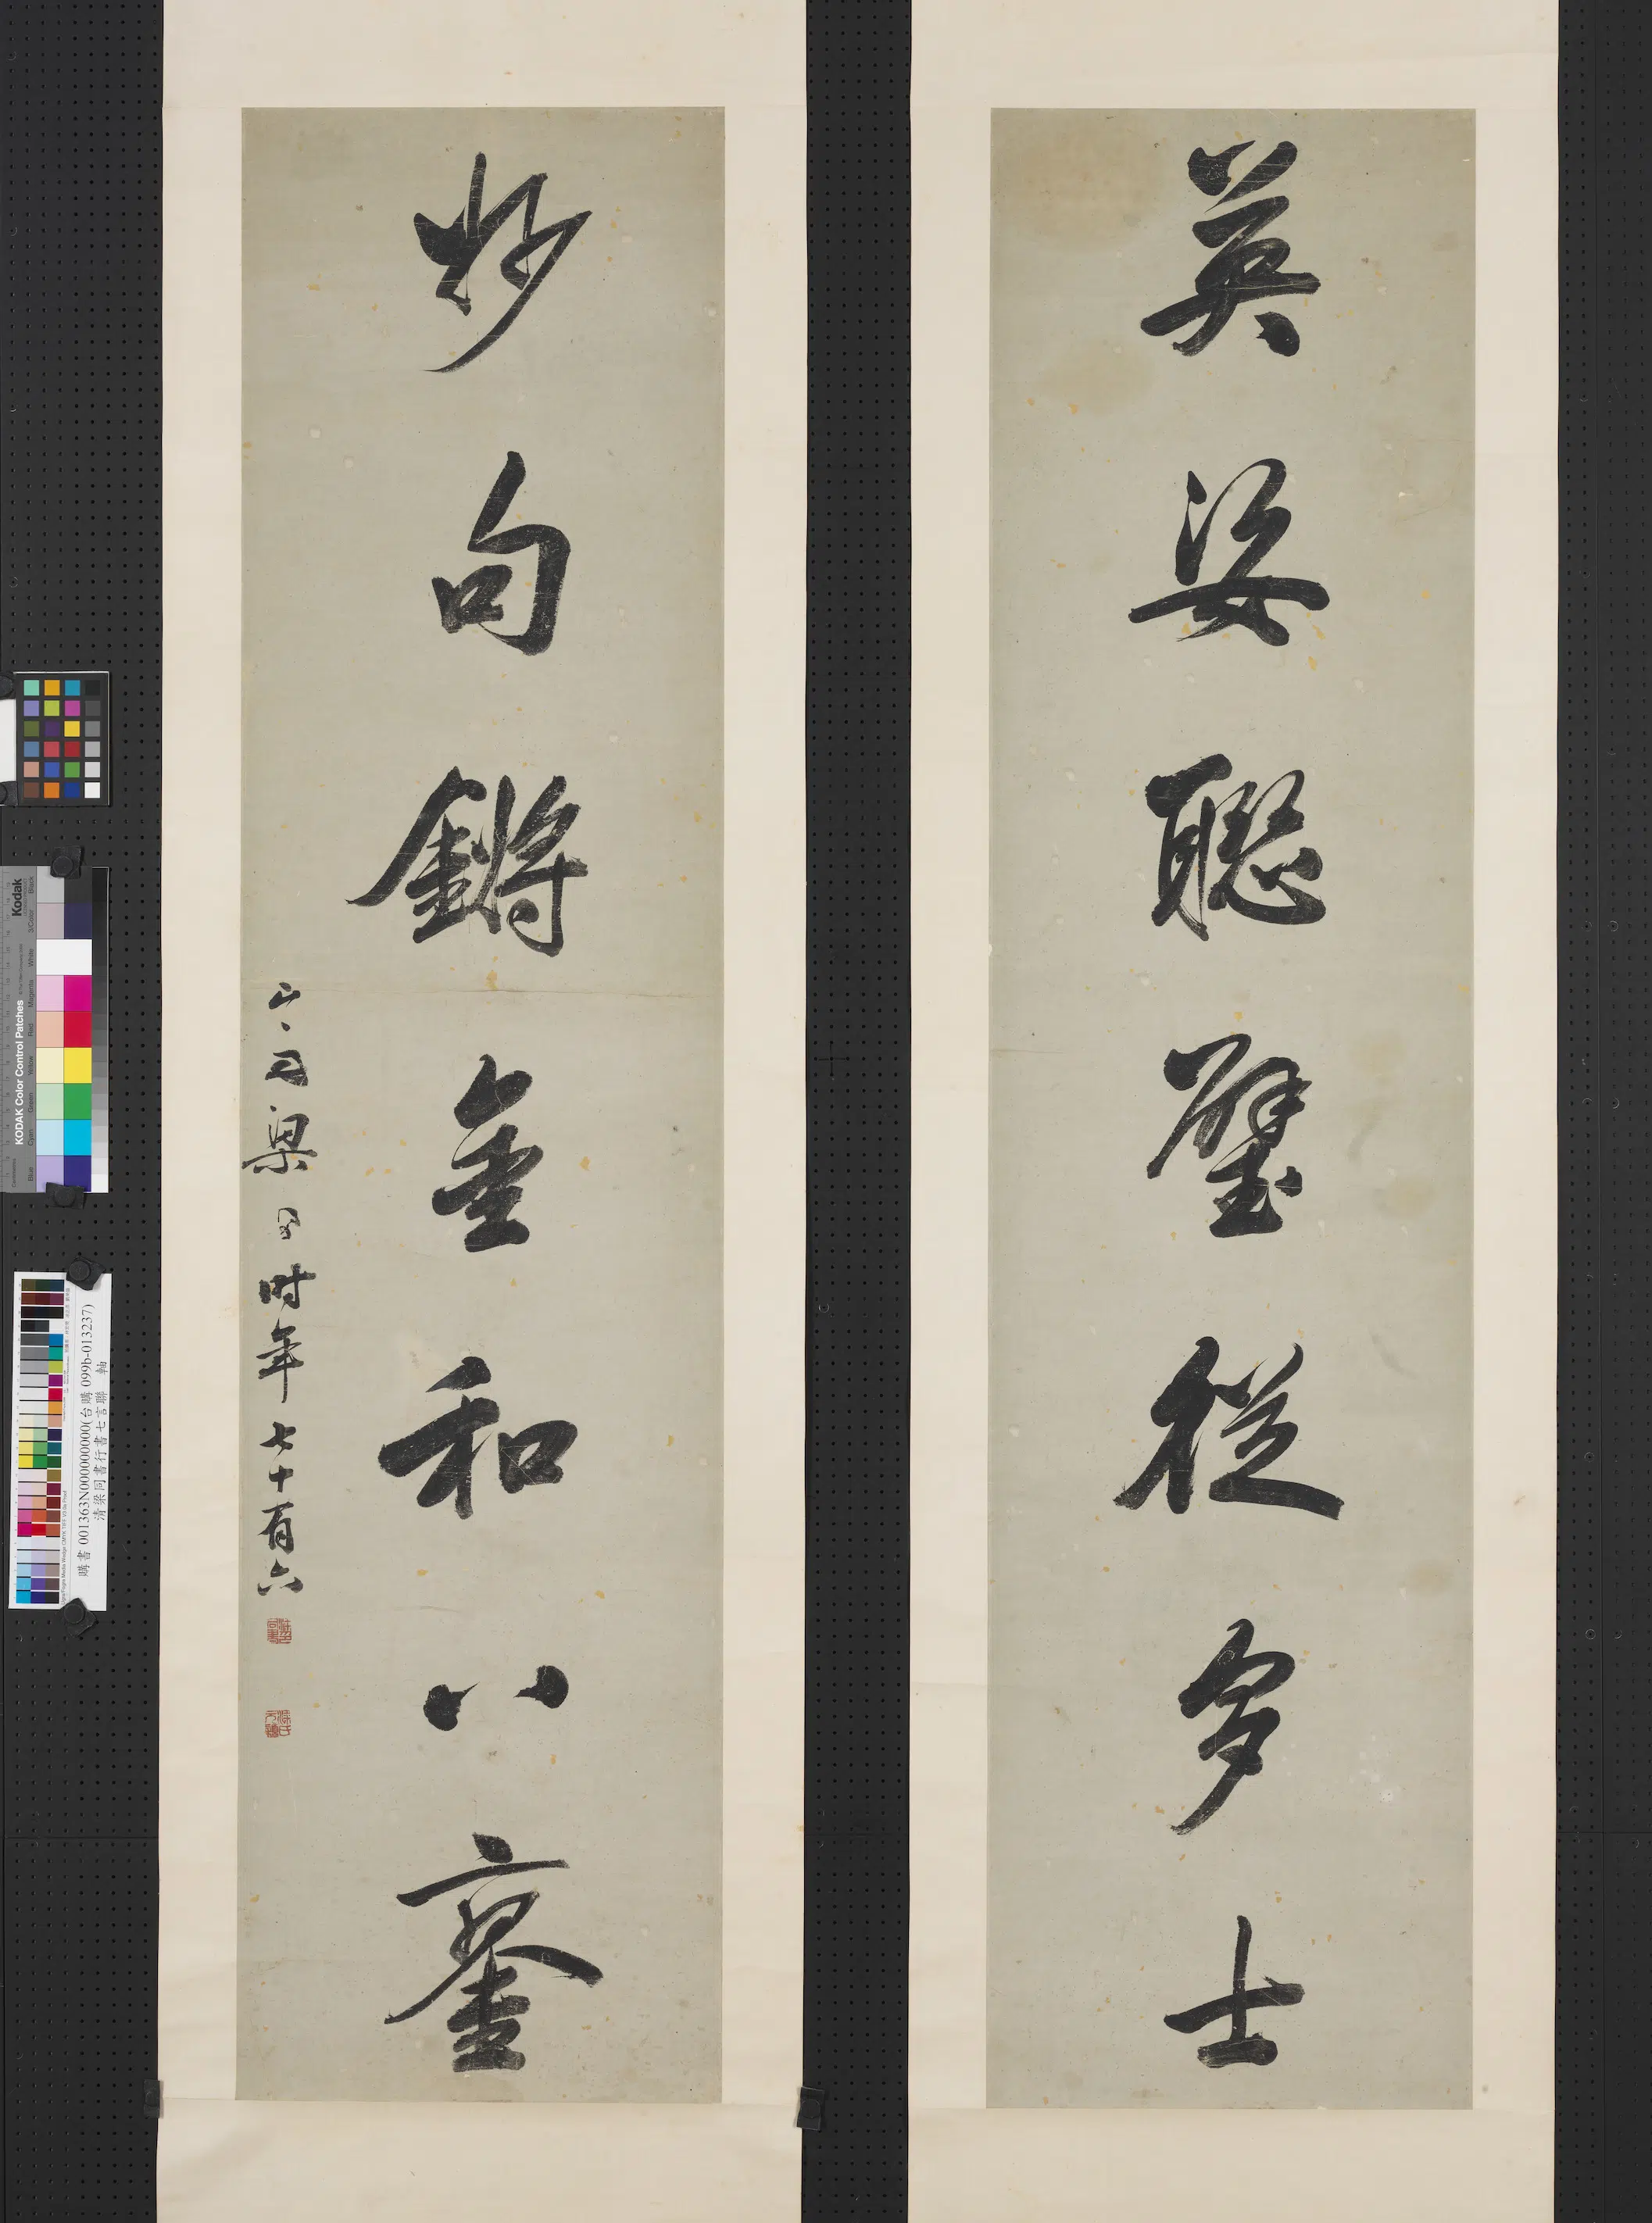 英姿聯璧從多士
妙句鏘金和八鑾
山舟梁同書時年七十有六
Kodak
KODAK Color Control Patches
Blue Cyan Green Yellow Red Magenta White 3/Color Black
購書 001363N000000000(台購 099b-013237)
清梁同書行書七言聯 軸